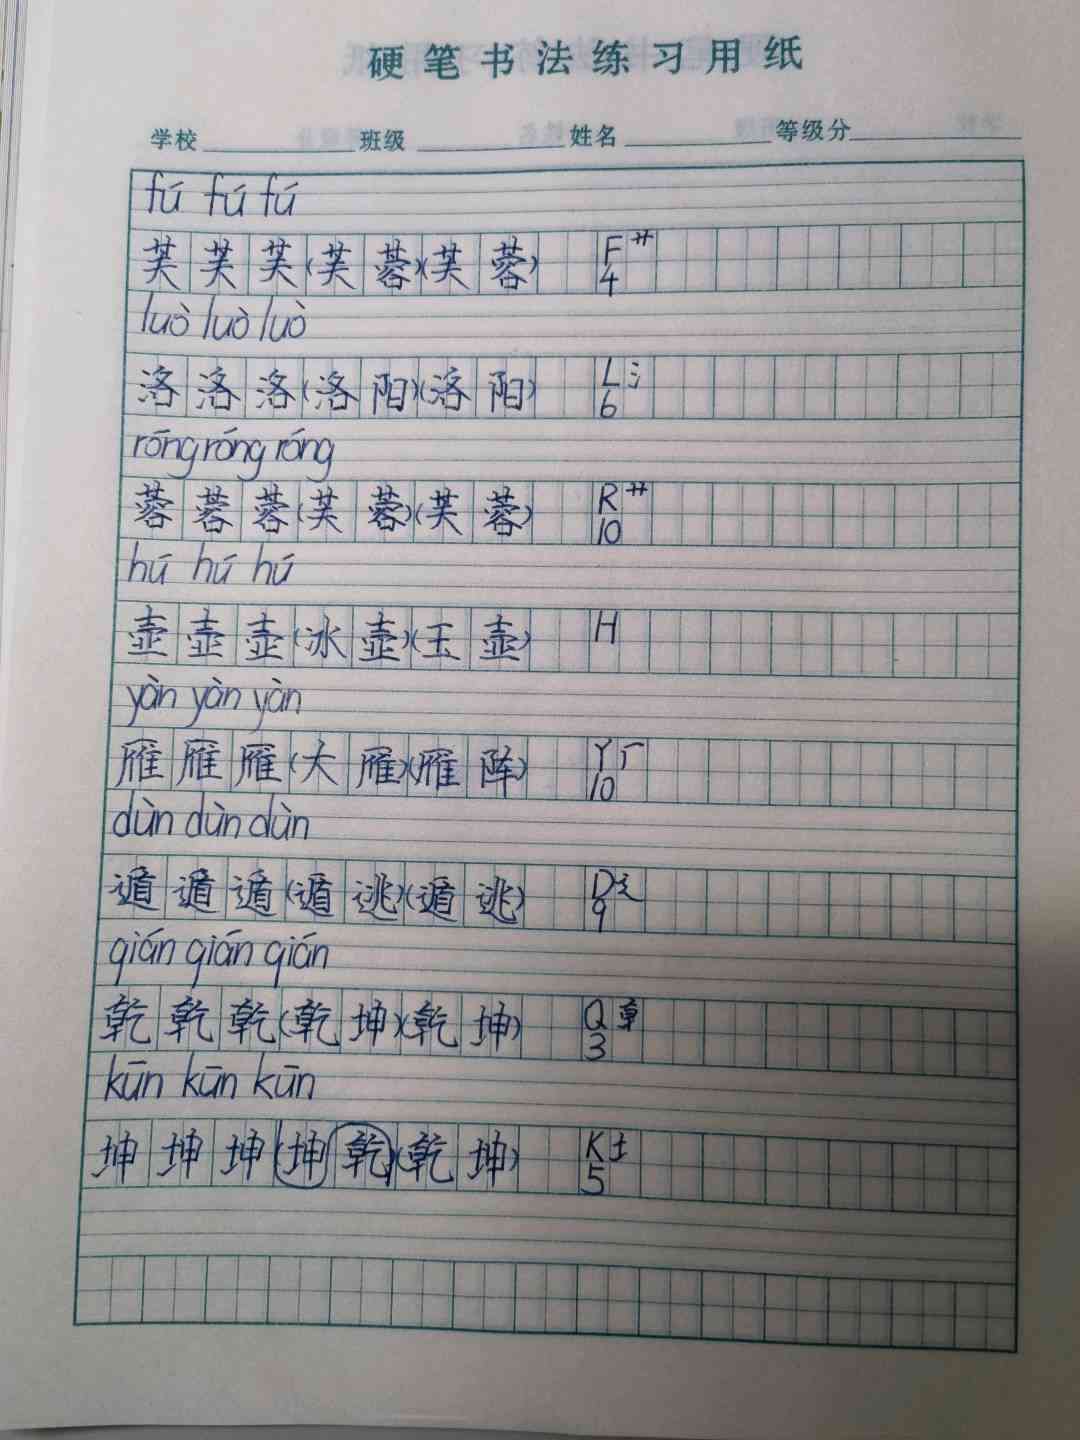 硬笔书法练习用纸
学校 班级 姓名 等级分
fú fú fú
芙芙芙(芙蓉)(芙蓉) F艹4
luò luò luò
洛洛洛(洛阳)(洛阳) L氵6
róng róng róng
蓉蓉蓉(芙蓉)(芙蓉) R艹10
hú hú hú
壶壶壶(冰壶)(玉壶) H
yàn yàn yàn
雁雁雁(大雁)(雁阵) Y厂10
dùn dùn dùn
遁遁遁(遁逃)(遁逃) D辶9
qián qián qián
乾乾乾(乾坤)(乾坤) Q𠦝3
kūn kūn kūn
坤坤坤(坤乾)(乾坤) K土5